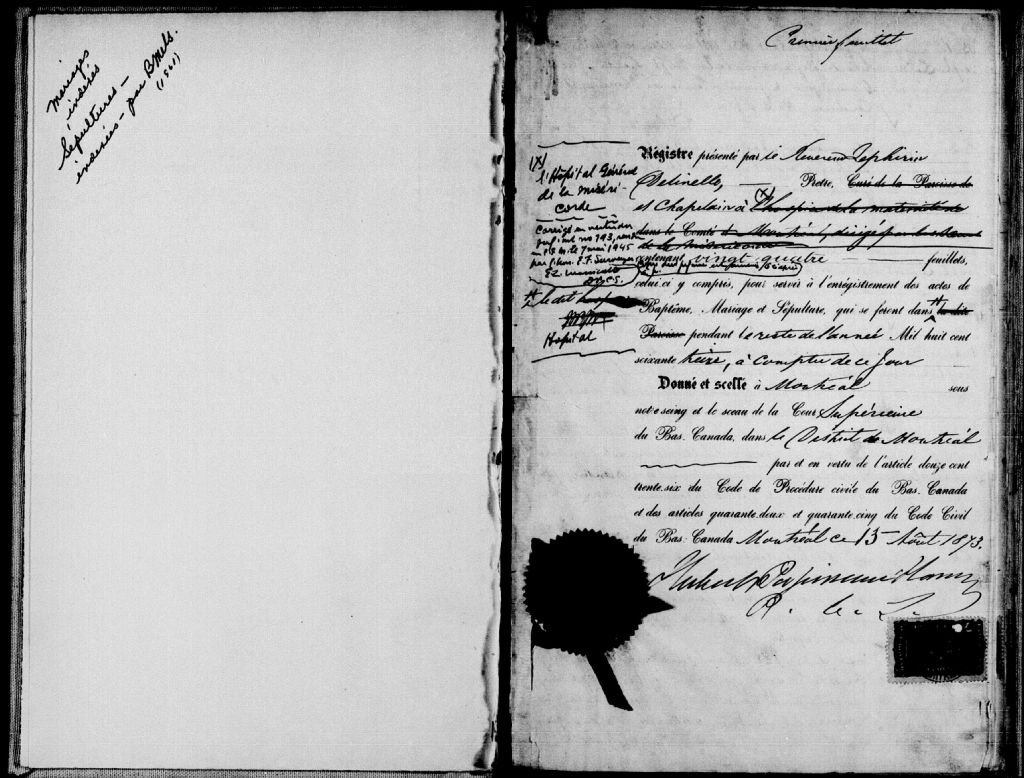 mariages
insérés
Sépultures -
insérées - par B Mels.
Premier feuillet
Régistre présenté par le Reverend Zephirin
Delinelle, Pretre, Curé de la Paroisse de
et Chapelain à (x) l'hospice de la maternité de
dans le Comté de Montréal, dirigé par les
de la miséricorde
contenant vingt quatre feuillets,
celui-ci y compris, pour servir à l'enrégistrement des actes de
Baptême, Mariage et Sépulture, qui se feront dans la dite
Paroisse pendant le reste de l'année Mil huit cent
soixante treize, à compter de ce jour
Donné et scellé à Montréal sous
notre seing et le sceau de la Cour Supérieure
du Bas-Canada, dans le District de Montréal
par et en vertu de l'article douze cent
trente-six du Code de Procédure civile du Bas-Canada
et des articles quarante-deux et quarante-cinq du Code Civil
du Bas-Canada Montréal ce 15 Août 1873.
(x)
l'Hôpital Général
de la miséri-
corde
Corrigé en vertu d'un
jugement no 793, rendu
le 7 juin 1945
par l'hon. E. F. Surveyer
le dit
Hopital